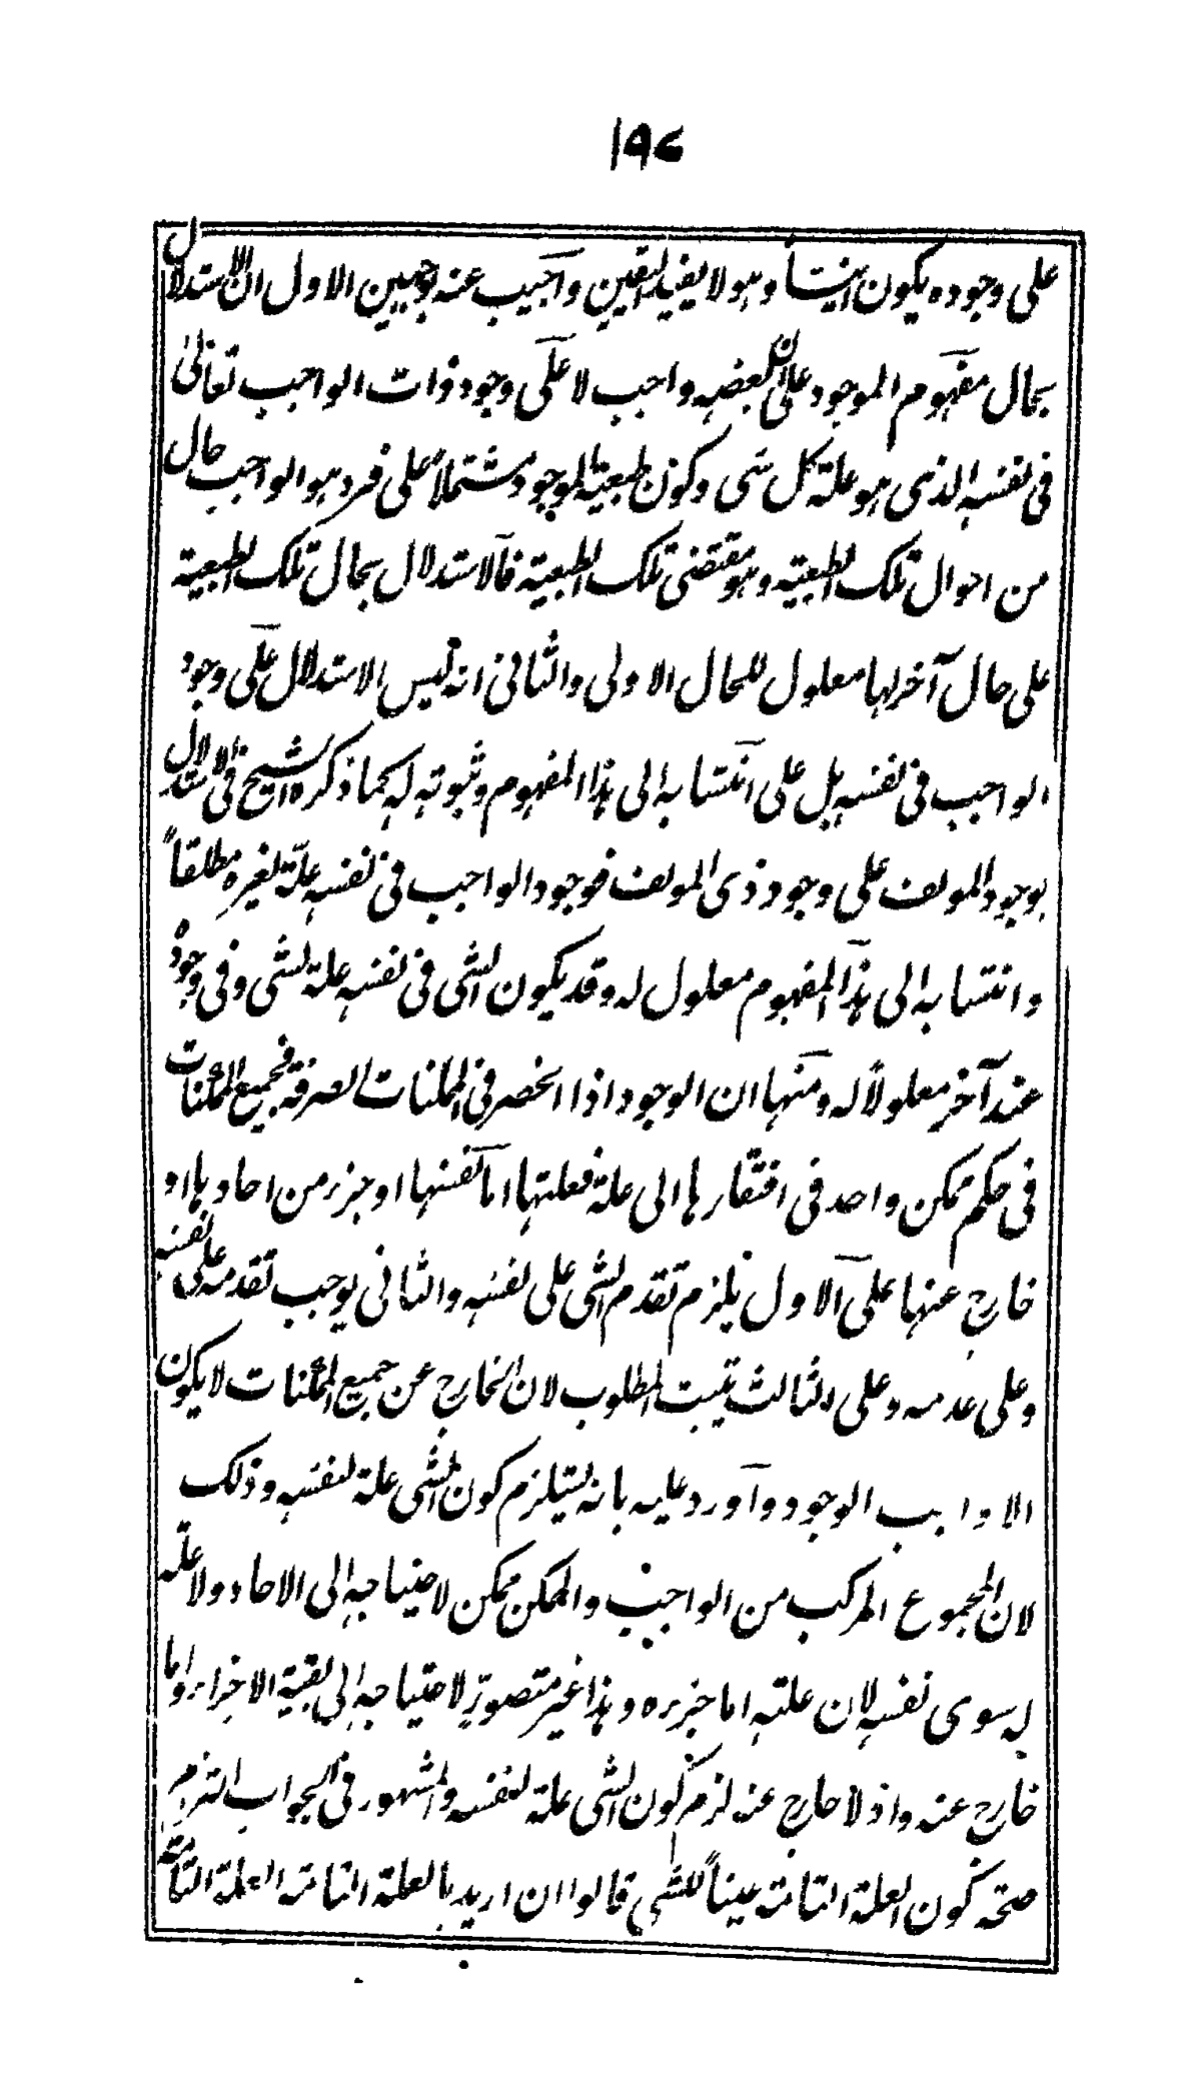 ١٩٤
على وجوده يكون انيتاً وهو لا يفيد اليقين وآجيب عنه بوجهين الاول ان الاستدلال
بحال مفهوم الموجود على ان بعضه واجب لا على وجود ذات الواجب تعالى
فى نفسه الذى هو علة كل شى وكون طبعية الموجود مشتملاً على فرد هو الواجب حال
من احوال تلك الطبعية وهو مقتضى تلك الطبعية فالاستدلال بحال تلك الطبعية
على حال آخر لها معلول للحال الاولى والثانى انه ليس الاستدلال على وجود
الواجب فى نفسه بل على انتسابه الى هذا المفهوم وثبوته له كما ذكره الشيخ فى الاستدلال
بوجود المولف على وجود ذى المولف فوجود الواجب فى نفسه علة لغيره مطلقاً
وانتسابه الى هذا المفهوم معلول له وقد يكون الشى فى نفسه علة لشى وفى وجوده
عند آخر معلولاً له ومنها ان الوجود اذا انحصر فى الممكنات الصرفة فجميع الممكنات
فى حكم ممكن واحد فى افتقارها الى علة فعلتها اما نفسها او جزء من احادها او
خارج عنها على الاول يلزم تقدم الشى على نفسه والثانى يوجب تقدمه على نفسه
وعلى عدمه وعلى الثالث يثبت المطلوب لان الخارج عن جميع الممكنات لا يكون
الا واجب الوجود وآورد عليه بانه يستلزم كون الشى علة لنفسه وذلك
لان المجموع المركب من الواجب والممكن ممكن لاحتياجه الى الاحاد ولا علة
له سوى نفسه لان علته اما جزءه وهذا غير متصور لاحتياجه الى بقية الاجزاء واما
خارج عنه واذ لا خارج عنه لزم كون الشى علة لنفسه والمشهور فى الجواب التزام
صحة كون العلة التامة عيناً للشى قالوا ان اريد بالعلة التامة العلة التامة